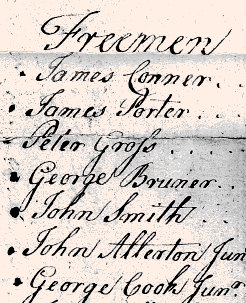 Freemen
James Conner . .
James Porter . . .
Peter Groſs . . . .
George Bruner . .
John Smith . .
John Allerton Jun
George Cook Junr